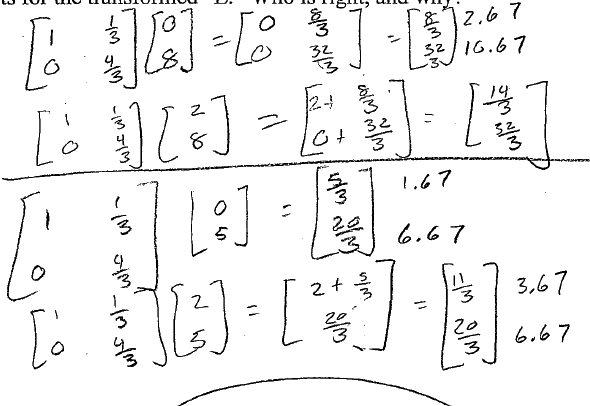 ts for the transformed "L." Who is right, and why?
[1 1/3; 0 4/3] [0; 8] = [0 8/3; 0 32/3] = [8/3; 32/3] 2.67 10.67
[1 1/3; 0 4/3] [2; 8] = [2+ 8/3; 0+ 32/3] = [14/3; 32/3]
[1 1/3; 0 4/3] [0; 5] = [5/3; 20/3] 1.67 6.67
[1 1/3; 0 4/3] [2; 5] = [2 + 5/3; 20/3] = [11/3; 20/3] 3.67 6.67